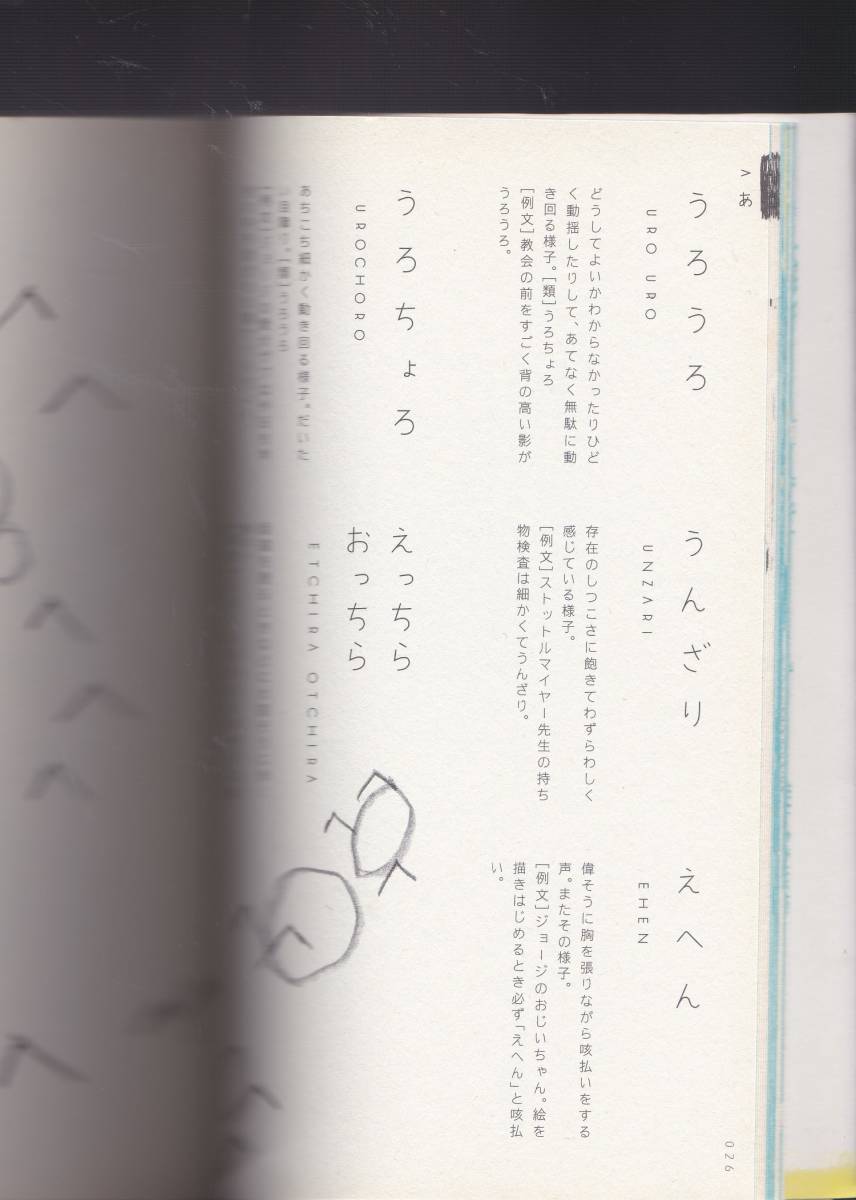 > あ
うろうろ
URO URO
どうしてよいかわからなかったりひど
く動揺したりして、あてなく無駄に動
き回る様子。[類]うろちょろ
[例文]教会の前をすごく背の高い影が
うろうろ。
うんざり
UNZARI
存在のしつこさに飽きてわずらわしく
感じている様子。
[例文]ストットルマイヤー先生の持ち
物検査は細かくてうんざり。
えへん
EHEN
偉そうに胸を張りながら咳払いをする
声。またその様子。
[例文]ジョージのおじいちゃん。絵を
描きはじめるとき必ず「えへん」と咳払
い。
うろちょろ
UROCHORO
あちこち細かく動き回る様子。だいた
い目障り。[類]うろうろ
えっちら
おっちら
ETCHIRA OTCHIRA
026